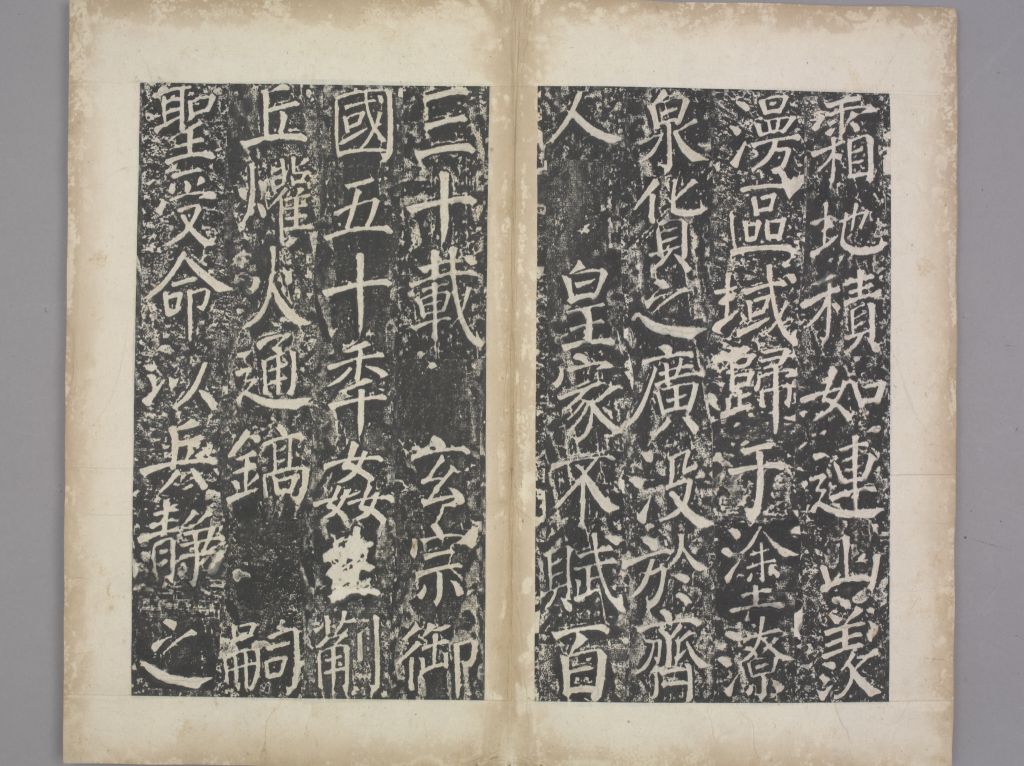 霜地積如連山羨
漫區域歸于塗潦
泉貨之廣没於齊
人　皇家不賦百
三十載　玄宗御
國五十年姦生薊
丘爟火通鎬　嗣
聖受命以兵靜之